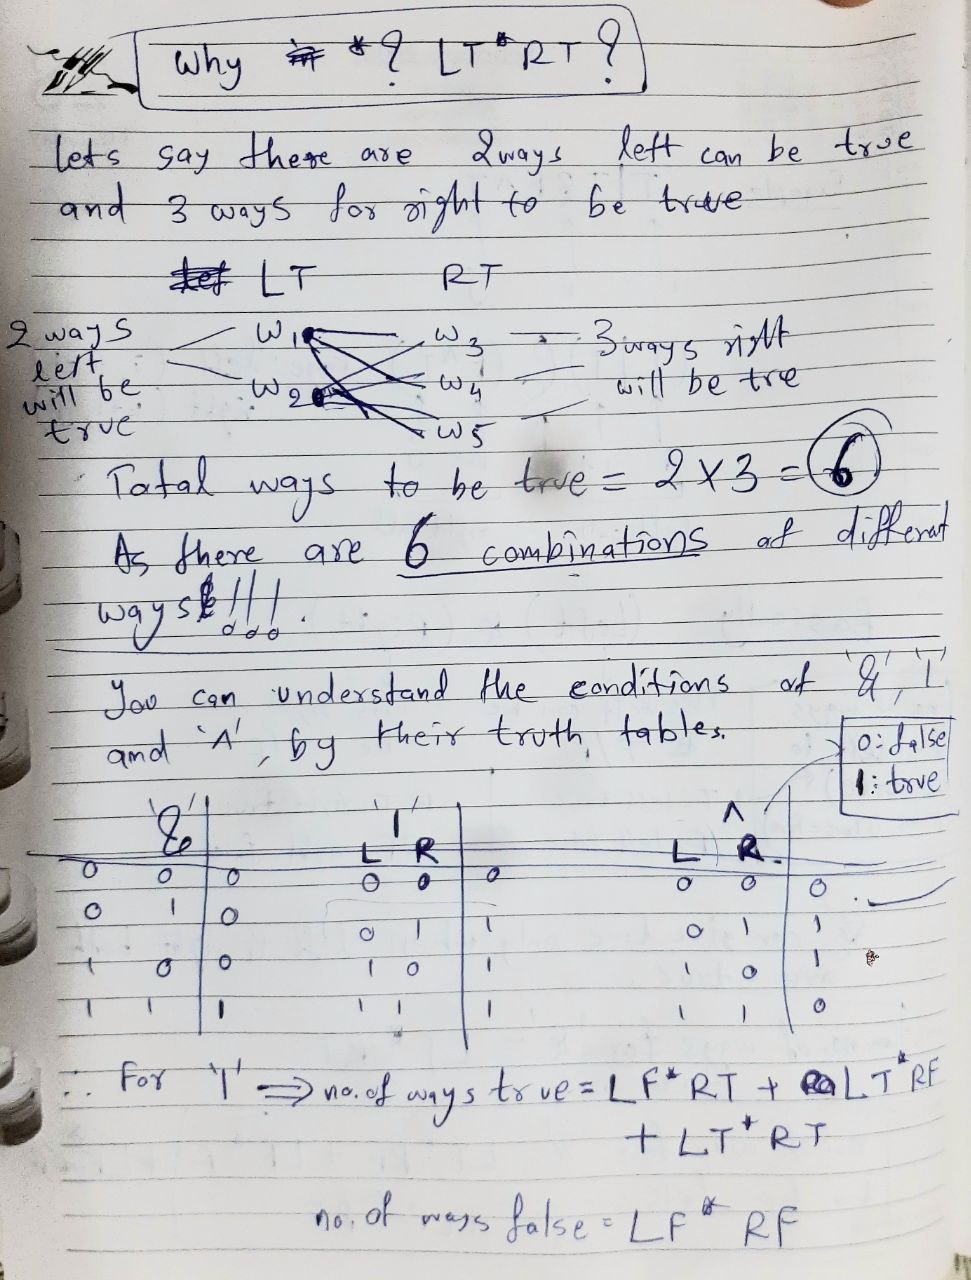 Why *? LT*RT?
lets say there are 2ways left can be true
and 3 ways for right to be true
LT RT
2 ways left will be true
W1 W3
W2 W4
W5
3ways right will be tre
Total ways to be true = 2 X 3 = 6
As there are 6 combinations of different
ways!!!.
You can understand the conditions of '&', '|'
and '^', by their truth tables.
0: false
1: true
'&' '|' ^
L R L R
0 0 0 0 0 0 0 0 0
0 1 0 0 1 1 0 1 1
1 0 0 1 0 1 1 0 1
1 1 1 1 1 1 1 1 0
∴ For '|' ⇒ no. of ways true = LF* RT + LT*RF
+ LT* RT
no. of ways false = LF* RF